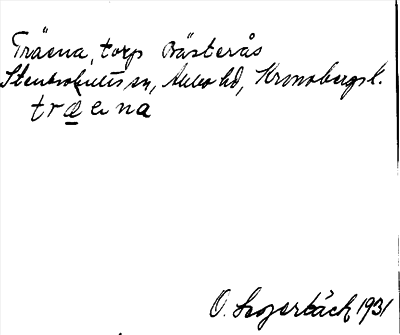 Träena, torp Bästerås
Stenbrohults sn, Allbo hd, Kronobergs l.
træena
O. 1931